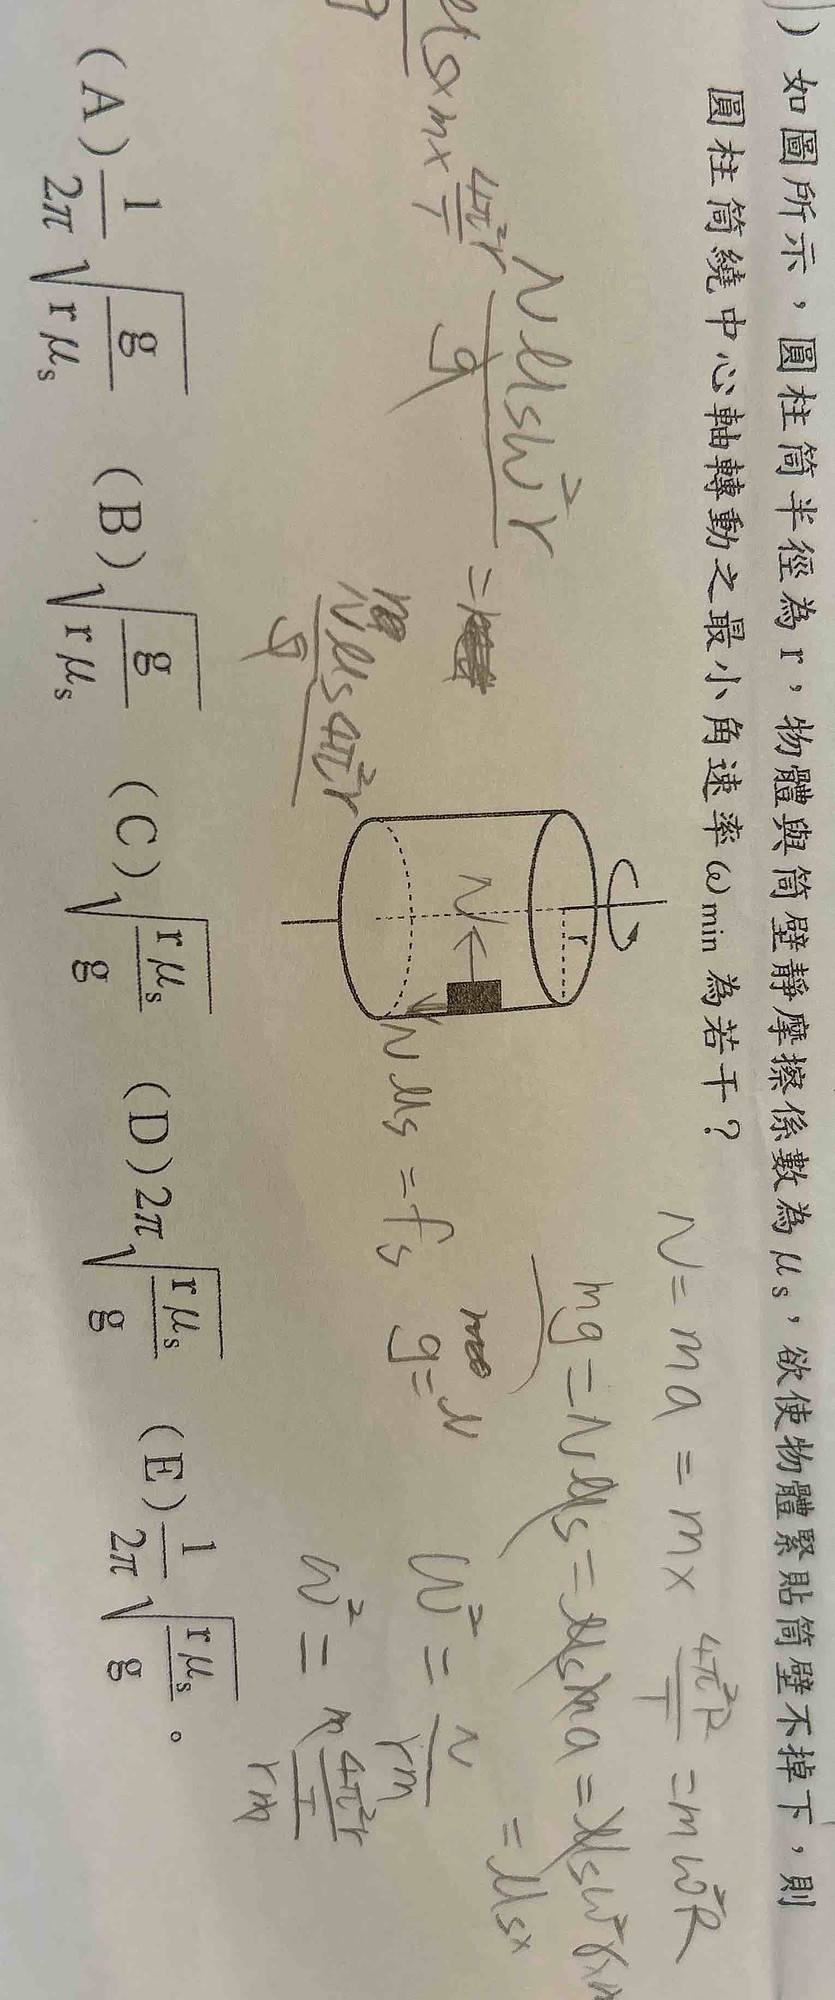 ) 如圖所示，圓柱筒半徑為r，物體與筒壁靜摩擦係數為μs，欲使物體緊貼筒壁不掉下，則
圓柱筒繞中心軸轉動之最小角速率ωmin為若干？
N = ma = m× 4π²R/T = mω²R
mg = Nμs = μsma = μsω²r×m
Nμsω²r/g =
= μs×
μs×m× 4π²r/T
g = N
ω² = N/rm
Nμs = fs
Nμs4π²r/g
ω² = m 4π²r/T / rm
r
N
(A) 1/2π √(g/rμs) (B) √(g/rμs) (C) √(rμs/g) (D) 2π √(rμs/g) (E) 1/2π √(rμs/g) 。